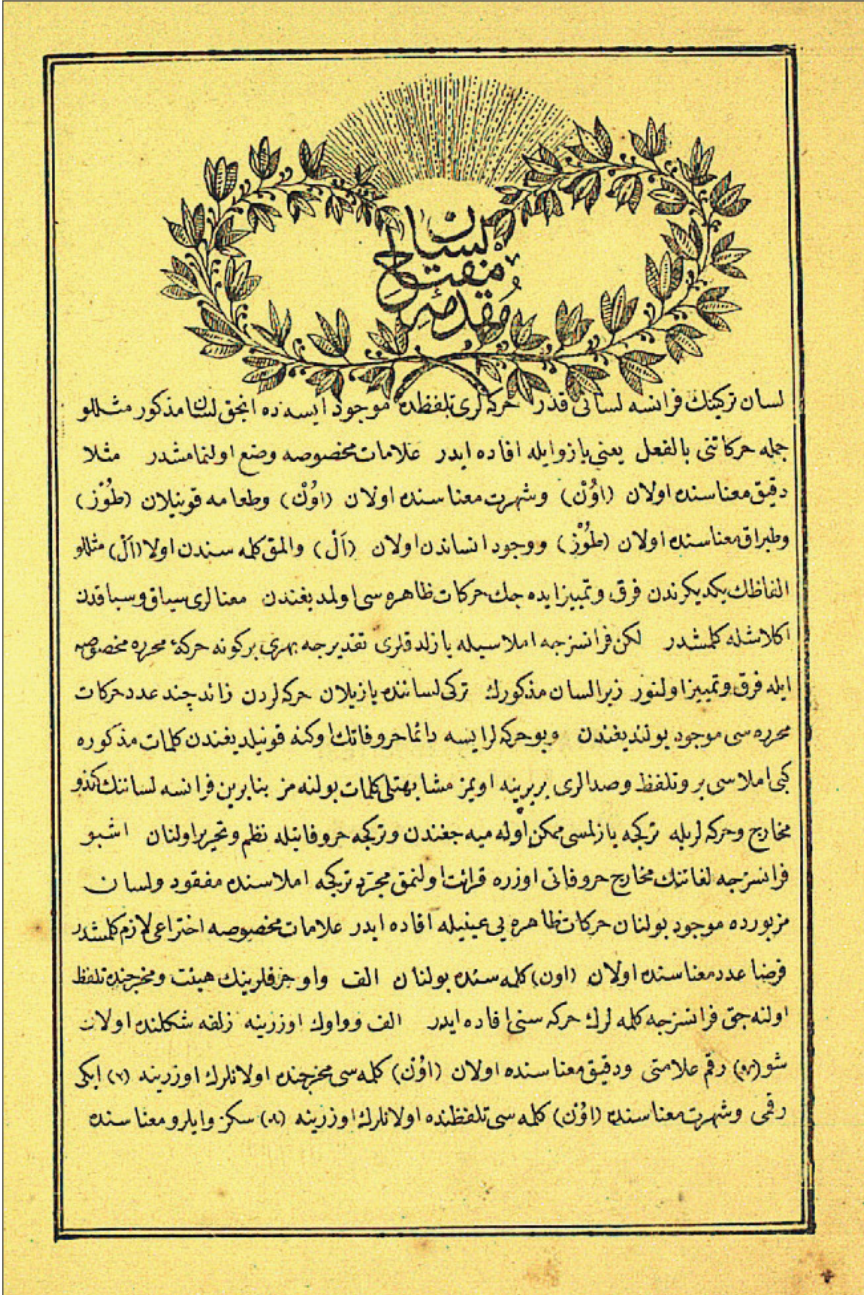 مقدمهٔ
مفتاح
لسان
لسان تركينك فرانسه لسانی قدر حركه لری تلفظده موجود ایسه ده انجق لسان مذكور مثللو
جمله حركاتنی بالفعل یعنی یازو ایله افاده ایدر علامات مخصوصه وضع اولنمامشدر مثلا
دقیق معناسنده اولان (اوُنْ) وشهرت معناسنده اولان (اوُنْ) وطعامه قونیلان (طوُزْ)
وطپراق معناسنده اولان (طوُزْ) ووجود انساندن اولان (اَلْ) والمق كلمه سندن اولان (اَلْ) مثللو
الفاظك یكدیكرندن فرق وتمییز ایده جك حركات ظاهره سی اولمدیغندن معنالری سیاق وسباقدن
اكلاشله كلمشدر لكن فرانسزجه املاسیله یازلدقلری تقدیرجه بهری بركونه حركهٔ محرره مخصوصه
ایله فرق وتمییز اولنور زیرا لسان مذكورك تركی لساننده یازیلان حركه لردن زائد چند عدد حركات
محرره سی موجود بولندیغندن وبو حركه لر ایسه دائما حروفاتك اوكنه قونیلدیغندن كلمات مذكوره
كبی املاسی بر وتلفظ وصدالری بربرینه اویمز مشابهتلی كلمات بولنه مز بنابرین فرانسه لساننك كندو
مخارج وحركه لریله تركیجه یازلمسی ممكن اوله میه جغندن وتركیجه حروفاتیله نظم وتحریر اولنان اشبو
فرانسزجه لغاتنك مخارج حروفاتی اوزره قرائت اولنمق مجرد تركیجه املاسنده مفقود ولسان
مزبورده موجود بولنان حركات ظاهره یی عینیله افاده ایدر علامات مخصوصه اختراعی لازم كلمشدر
فرضا عدد معناسنده اولان (اون) كلمه سنده بولنان الف واو حرفلرینك هیئت ومخرجنده تلفظ
اولنه جق فرانسزجه كلمه لرك حركه سنی افاده ایدر الف وواوك اوزرینه زلفه شكلنده اولان
شو رقم علامتی ودقیق معناسنده اولان (اوُنْ) كلمه سی مخرجنده اولانلرك اوزرینه (٢) ایكی
رقمی وشهرت معناسنده (اوُنْ) كلمه سی تلفظنده اولانلرك اوزرینه (٨) سكز وایلرو معناسنده